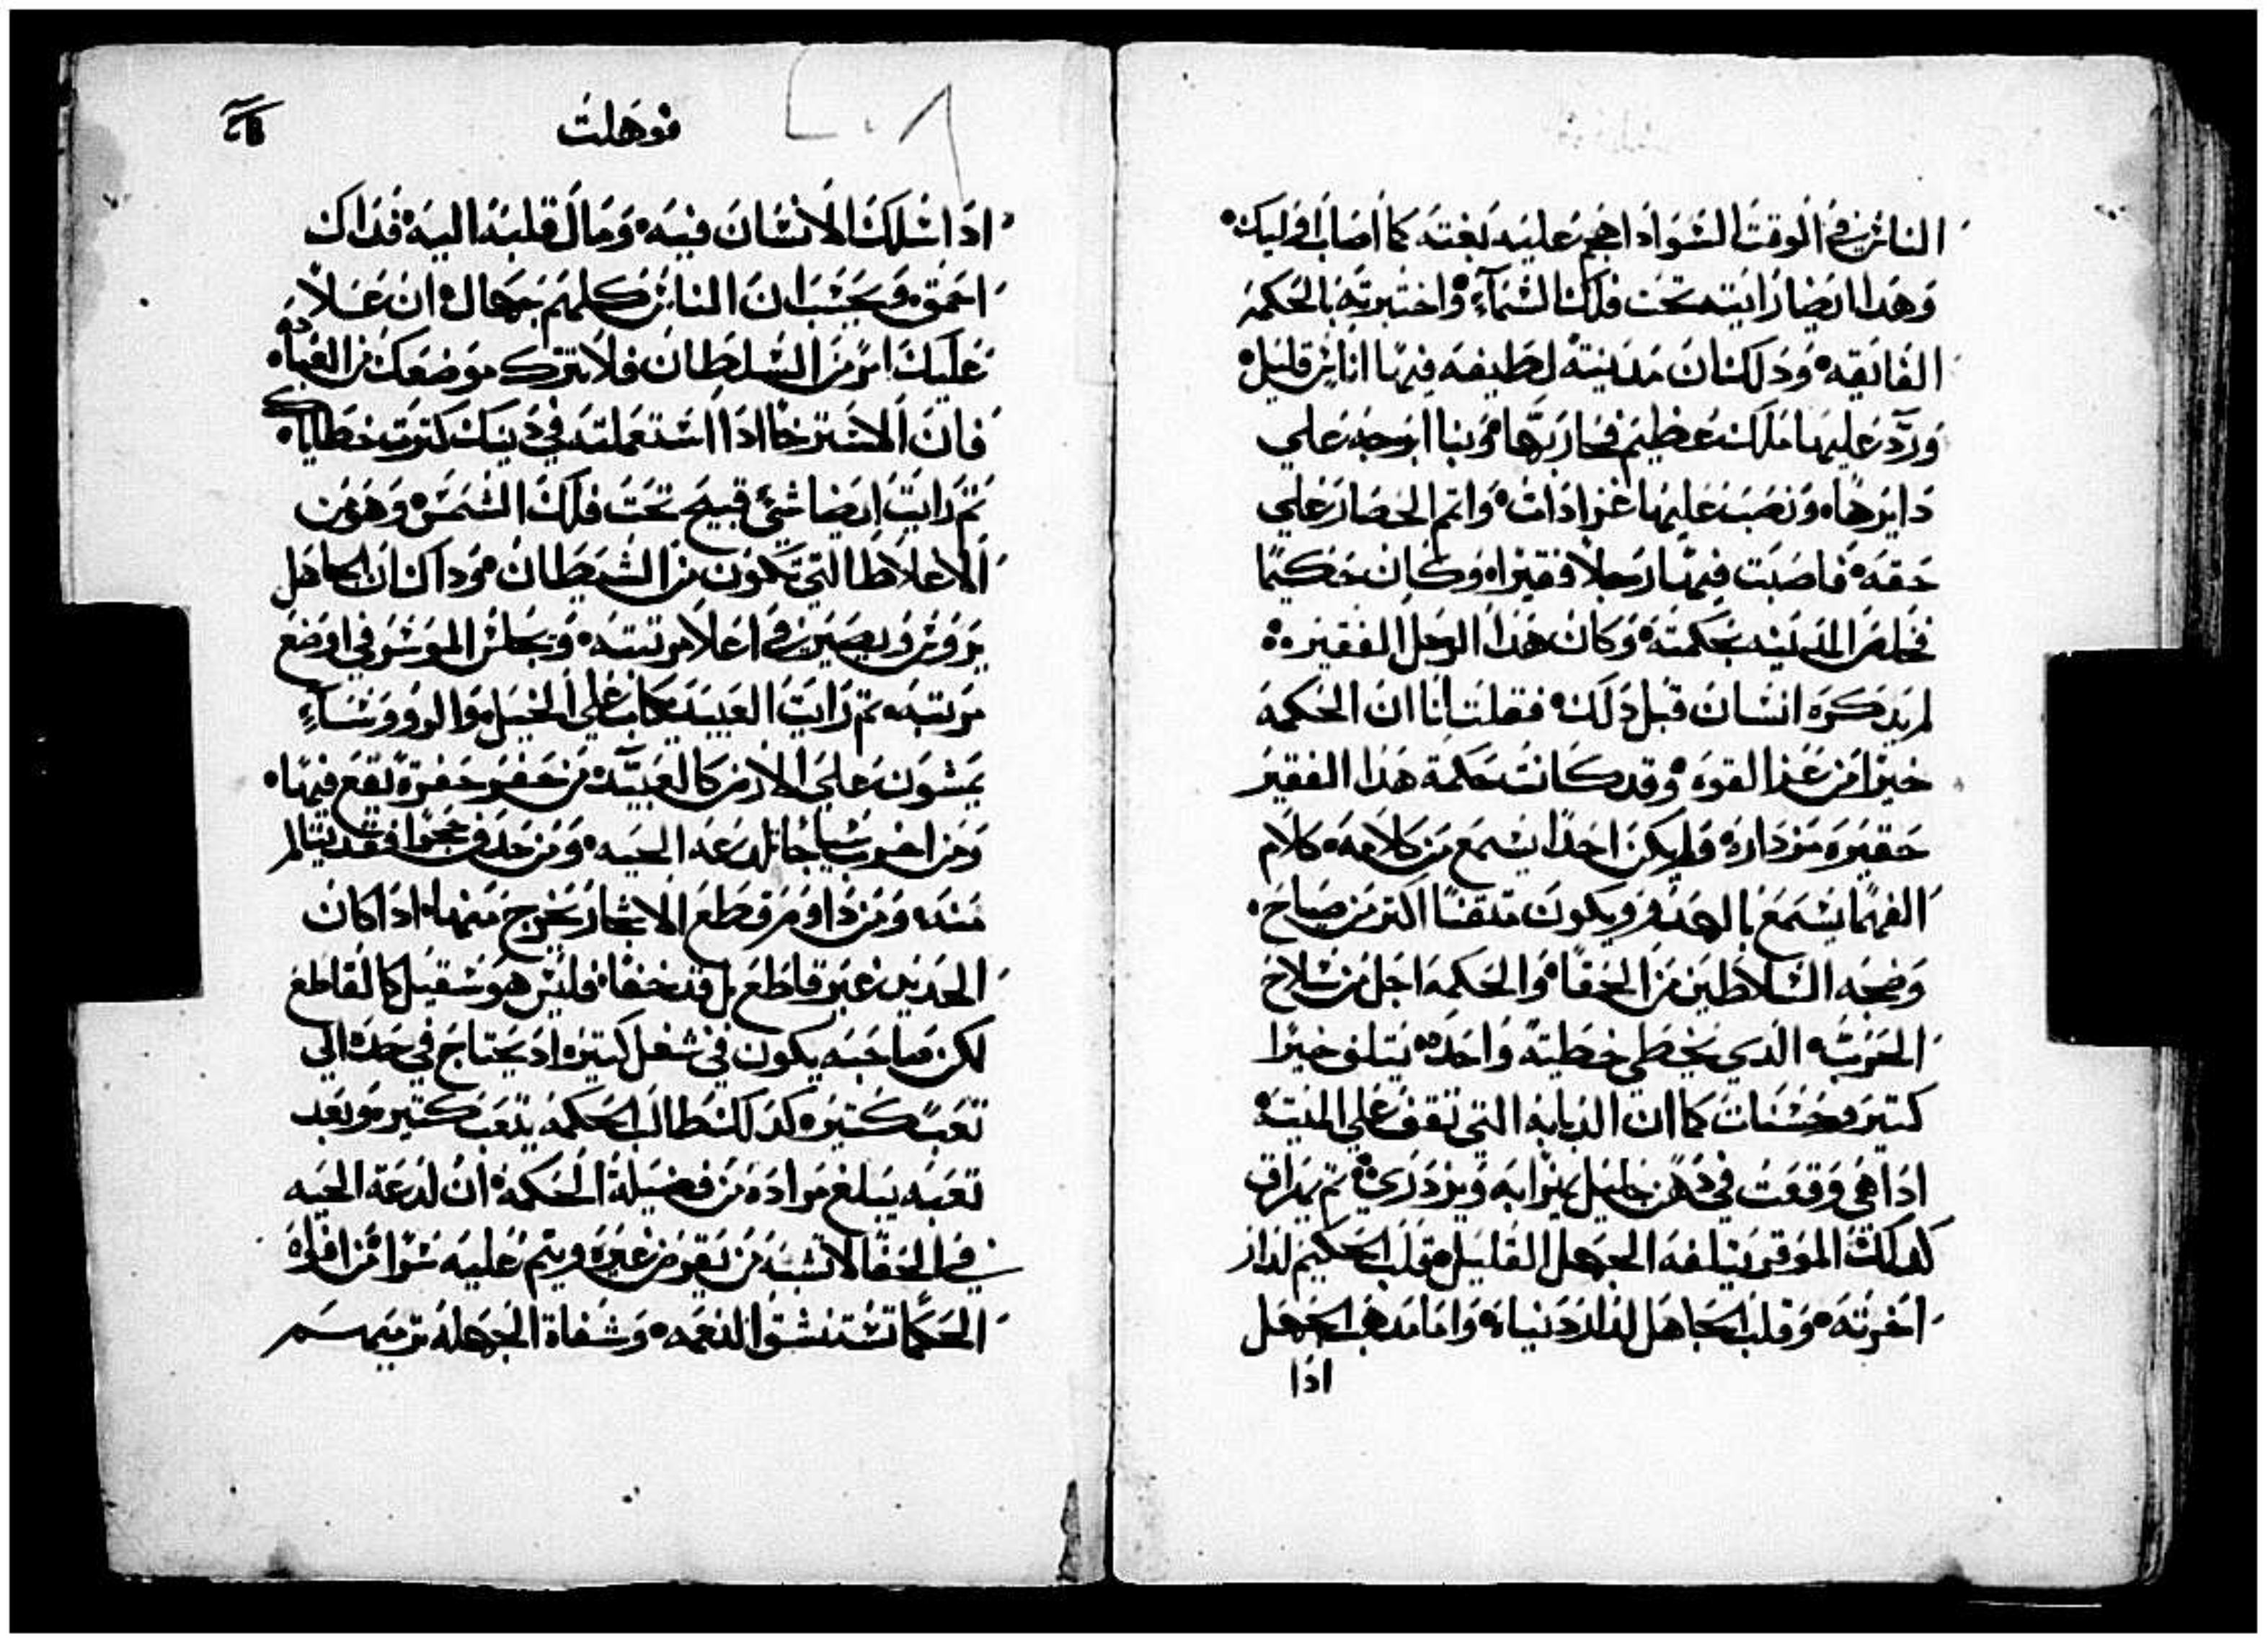 الناس في الوقت السو اذا هجم عليه بغته كما اصاب اوليك
وهدا ايضا رايته تحت فلك السماء واختبرته بالحكمه
الفايقه ودلك ان مدينته لطيفه فيها اناس قليل
ورد عليها ملك عظيم فحاربها وبنا ابرجه علي
دايرها ونصب عليها عرادات واتم الحصار علي
حقه فاصبت فيها رجلا فقيرا وكان حكيما
فخلص المدينه بحكمته وكان هدا الرجل الفقير
لم يدكره انسان قبل دلك فقلت انا ان الحكمه
خيرا من عز القوه وقد كانت حكمة هدا الفقير
حقيره مزداره ولم يكن احدا يسمع من كلامه كلام
الفهما يسمع بالهدو ويكون متقنا اكتر من صياح
وضجه السلاطين من الحمقا والحكمه اجل من سلاح
الحرب الدي يخطي خطيته واحده يتلف خيرا
كتير وحسنات كما ان الدبابه التي تقف علي الميته
اذا هي وقعت في دهن جليل يهزا به ويزدري تم يهراق
كدلك الموقر يتلفه الجهل القليل قلب الحكيم لدار
اخرته وقلب الجاهل لدار دنياه واما مدهب الجهل
اذا
قوهلت
اذا سلك الانسان فيه ومال قلبه اليه فداك
احمق ويحسب ان الناس كلهم جهال ان علا
عليك امر من السلطان فلا تترك موضعك من
فان الاسترخا اذا استعملته في دينك كترت خطاياك
تم رايت ايضا شي قبيح تحت فلك الشمس وهو من
الاغلاط التي تكون من الشيطان وداك ان الجاهل
يروس ويصير في اعلا مرتبته ويجلس الموسر في اوضع
مرتبه تم رايت العبيد ركاب علي الخيل والروسا
يمشون علي الارض كالعبيد من حفر حفرة يقع فيها
ومن اخرب سياجا لدعه الحيه ومن حدف حجرا فقد يتالم
منه ومن داوم قطع الاشجار يخرج منها ادا كان
الحديد غير قاطع بل قد حفا فليس هو سقيل كالقاطع
لكن صاحبه يكون في شغل كتير اد يحتاج في حده الي
تعب كتير كدلك طالب الحكمه يتعب كتير وبعد
تعبه يبلغ مراده من فضيلة الحكمه ان لدعة الحيه
في الخفا لا تشبه من يقرض غيره وينم عليه سرا من افواه
الحكما تستنشق النعمه وشفاة الجهله ترميهم